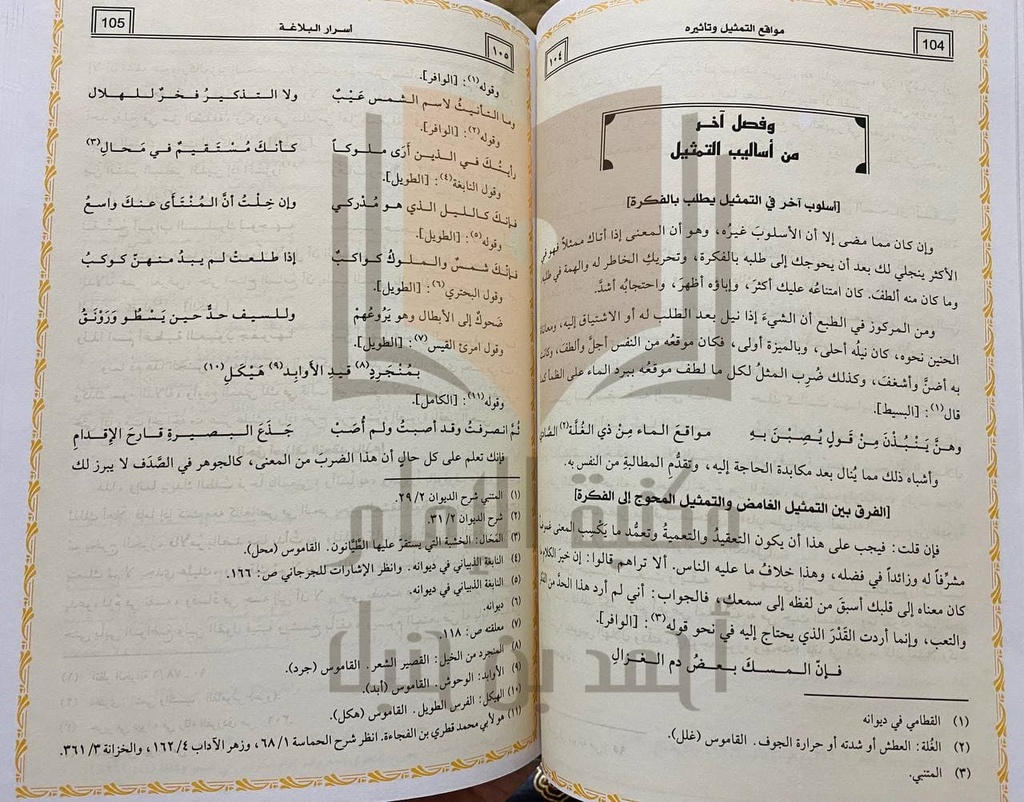 104
مواقع التمثيل وتأثيره
١٠٤
وفصل آخر
من أساليب التمثيل
[أسلوب آخر في التمثيل يطلب بالفكرة]
وإن كان مما مضى إلا أن الأسلوبَ غيرُه، وهو أن المعنى إذا أتاك ممثلاً فهو في
الأكثر ينجلي لك بعد أن يحوجك إلى طلبه بالفكرة، وتحريكِ الخاطر له والهمة في طلبه
وما كان منه ألطفَ. كان امتناعُه عليك أكثرَ، وإباؤه أظهرَ، واحتجابُه أشدَّ.
ومن المركوز في الطبع أن الشيءَ إذا نيل بعد الطلب له أو الاشتياق إليه، ومعاناة
الحنين نحوه، كان نيلُه أحلى، وبالميزة أولى، فكان موقعُه من النفس أجلَّ وألطفَ، وكانت
به أضنَّ وأشغفَ، وكذلك ضُرِب المثلُ لكل ما لطف موقعُه ببرد الماء على الظمأ كما
قال(١): [البسيط].
وهنَّ يَنْبُذْنَ مِنْ قَولٍ يُصِبْنَ بهِ مواقعَ الماء مِنْ ذي الغُلَّة(٢) الصَّادي
وأشباه ذلك مما يُنال بعد مكابدة الحاجة إليه، وتقدُّم المطالبةِ من النفس به.
[الفرق بين التمثيل الغامض والتمثيل المحوج إلى الفكرة]
فإن قلت: فيجب على هذا أن يكون التعقيدُ والتعميةُ وتعمُّد ما يَكْسِب المعنى غموضاً
مشرِّفاً له وزائداً في فضله، وهذا خلافُ ما عليه الناس. ألا تراهم قالوا: إن خيرَ الكلام ما
كان معناه إلى قلبك أسبقَ من لفظه إلى سمعك، فالجواب: أني لم أرد هذا الحدَّ من الفكر
والتعب، وإنما أردت القَدْرَ الذي يحتاج إليه في نحو قوله(٣): [الوافر].
فإنّ المسكَ بعضُ دمِ الغزالِ
(١) القطامي في ديوانه
(٢) الغُلة: العطش أو شدته أو حرارة الجوف. القاموس (غلل).
(٣) المتنبي.
105
أسرار البلاغة
١٠٥
وقوله(١): [الوافر].
وما التأنيثُ لاسمِ الشمسِ عَيْبٌ ولا التذكيرُ فخرٌ للهلالِ
وقوله(٢): [الوافر].
رأيتُكَ في الذين أرَى ملوكاً كأنكَ مُسْتَقيمٌ في مَحالِ(٣)
وقول النابغة(٤): [الطويل].
فإنكَ كالليلِ الذي هو مُدْركي وإن خِلْتُ أنَّ المُنْتَأَى عنكَ واسعُ
وقوله(٥): [الطويل].
فإنّكَ شمسٌ والملوكُ كواكبٌ إذا طلعتْ لم يبدُ منهنّ كوكبُ
وقول البحتري(٦): [الطويل].
ضَحوكٌ إلى الأبطال وهو يَرُوعُهُمْ وللسيف حدٌّ حين يَسْطُو وَرَوْنَقُ
وقول امرئ القيس(٧): [الطويل].
بمُنْجَرِدٍ(٨) قيدِ الأَوابِد(٩) هَيْكَلِ(١٠)
وقوله(١١): [الكامل].
ثُمَّ انصرفتُ وقد أصبتُ ولم أُصَبْ جَذَعَ البصيرةِ قارحَ الإقدامِ
فإنك تعلم على كل حالٍ أن هذا الضربَ من المعنى، كالجوهر في الصَّدَف لا يبرز لك
(١) المتنبي شرح الديوان ٢/ ٢٩.
(٢) شرح الديوان ٢/ ٣١.
(٣) المَحَال: الخشبة التي يستقرّ عليها الطَّيَّانون. القاموس (محل).
(٤) النابغة الذبياني في ديوانه. وانظر الإشارات للجرجاني ص: ١٦٦.
(٥) النابغة الذبياني في ديوانه.
(٦) ديوانه.
(٧) معلقته ص: ١١٨.
(٨) المنجرد من الخيل: القصير الشعر. القاموس (جرد).
(٩) الأوابد: الوحوش. القاموس (أبد).
(١٠) الهيكل: الفرس الطويل. القاموس (هكل).
(١١) هو لأبي محمد قطري بن الفجاءة. انظر شرح الحماسة ١/ ٦٨، وزهر الآداب ٤/ ١٦٢، والخزانة ٣/ ٣٦١.
أحمد بن حنبل